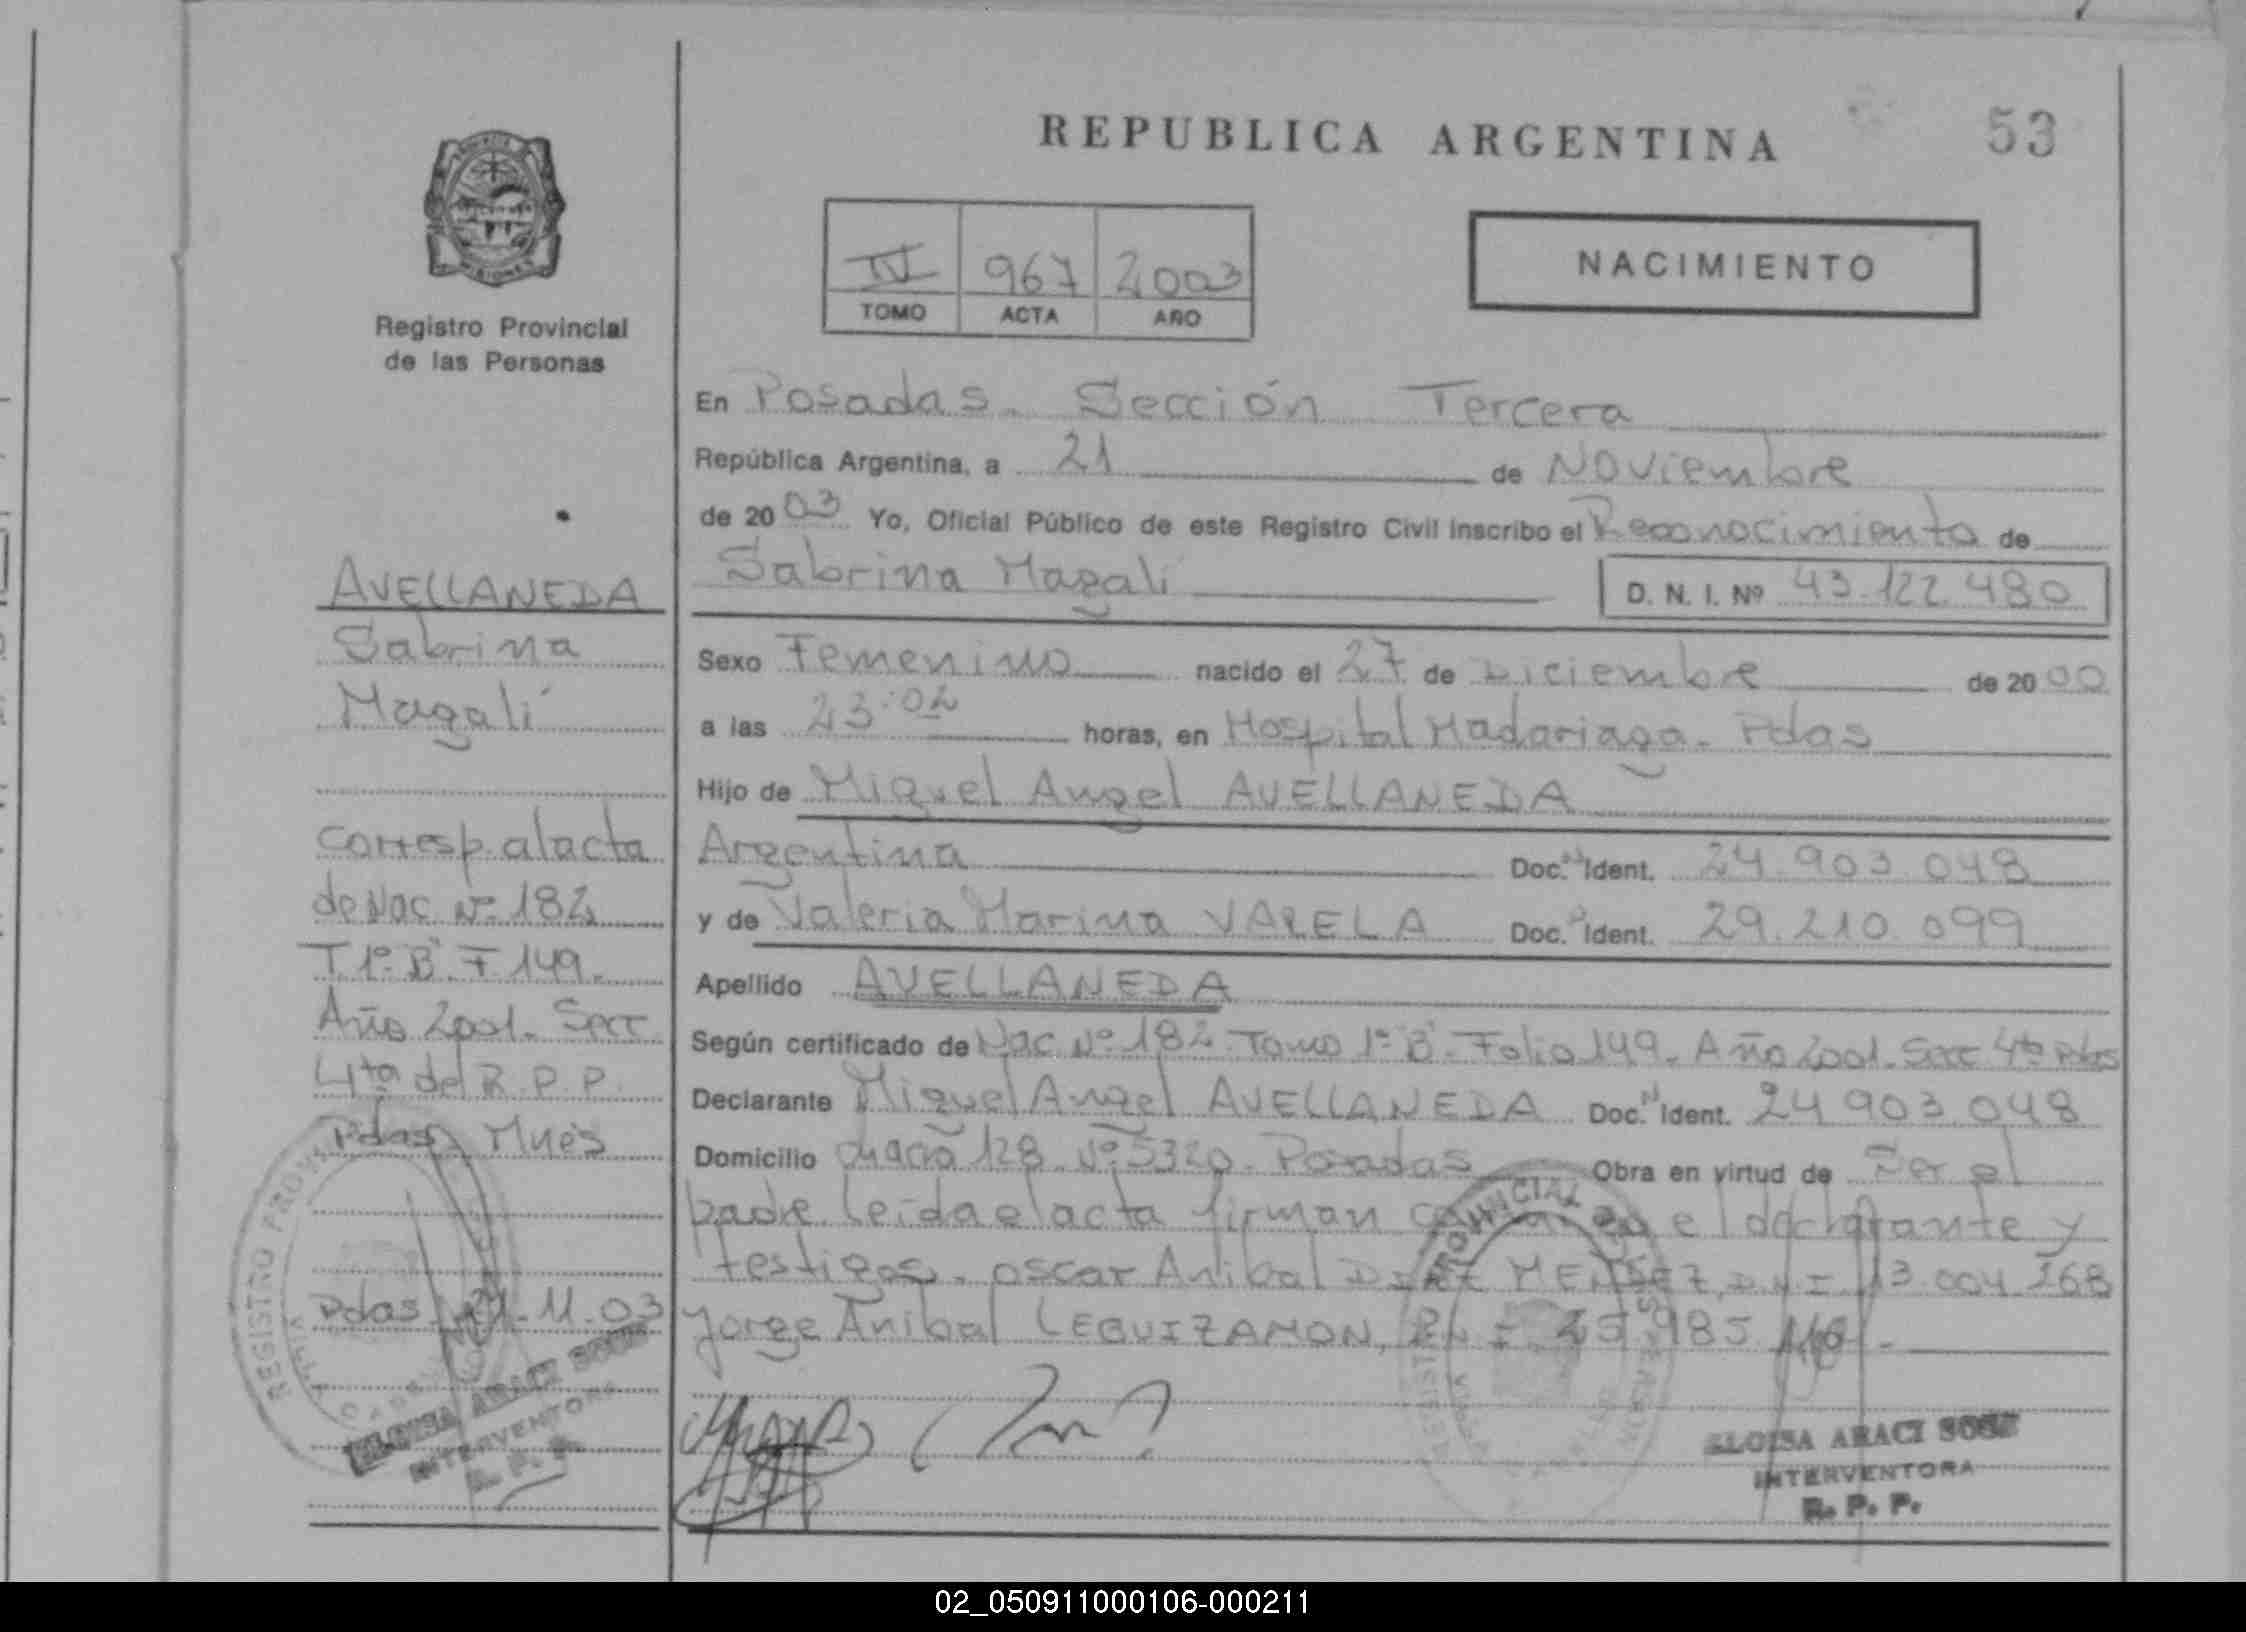 REPUBLICA ARGENTINA
53
MISIONES
Registro Provincial
de las Personas
IV 967 2003
TOMO ACTA AÑO
NACIMIENTO
En Posadas. Sección Tercera
República Argentina, a 21 de Noviembre
de 2003 Yo, Oficial Público de este Registro Civil inscribo el Reconocimiento de
Sabrina Magalí D. N. I. Nº 43.122.480
Sexo Femenino nacido el 27 de Diciembre de 2000
a las 23:02 horas, en Hospital Madariaga. Pdas
Hijo de Miguel Angel AVELLANEDA
Argentina Doc. Ident. 24.903.048
y de Valeria Marina VARELA Doc. Ident. 29.210.099
Apellido AVELLANEDA
Según certificado de Nac. Nº 182. Tomo 1º B. Folio 149. Año 2001. Secc 4ta Pdas
Declarante Miguel Angel AVELLANEDA Doc. Ident. 24 903.048
Domicilio chacra 128. Nº 5320. Posadas Obra en virtud de Ser el
padre. Leída el acta firman el declarante y
testigos. Oscar Anibal MENDEZ, D.N.I 13.004.268
Jorge Anibal LEGUIZAMON, 25.985
ELOISA ARACI SOSA
INTERVENTORA
R. P. P.
AVELLANEDA
Sabrina
Magalí
corresp. al acta
de Nac. Nº 182
T 1º B. F 149.
Año 2001. Secc
4ta del R.P.P.
Pdas Mnes
Pdas, 21.11.03
REGISTRO PROVINCIAL
ELOISA ARACI SOSA
INTERVENTORA
R. P. P.
02_050911000106-000211